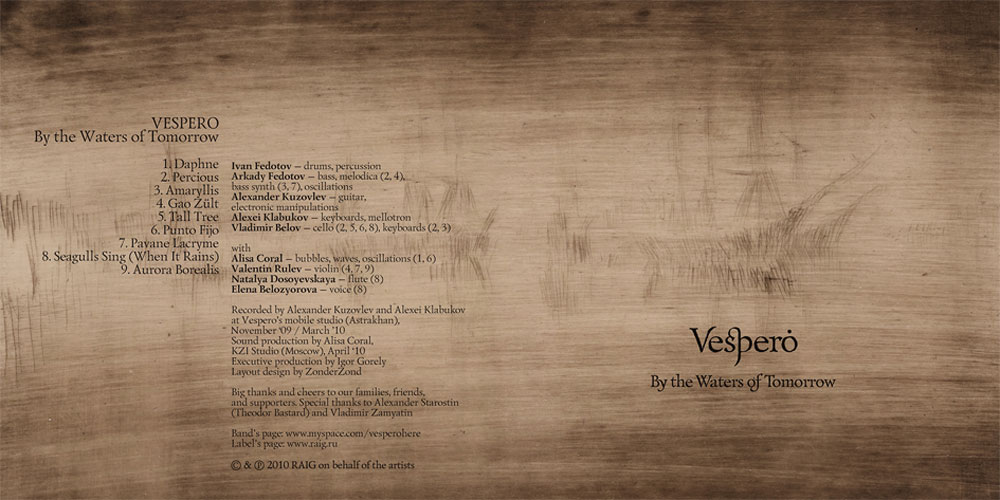 VESPERO
By the Waters of Tomorrow
1. Daphne
2. Percious
3. Amaryllis
4. Gao Zült
5. Tall Tree
6. Punto Fijo
7. Pavane Lacryme
8. Seagulls Sing (When It Rains)
9. Aurora Borealis
Ivan Fedotov – drums, percussion
Arkady Fedotov – bass, melodica (2, 4),
bass synth (3, 7), oscillations
Alexander Kuzovlev – guitar,
electronic manipulations
Alexei Klabukov – keyboards, mellotron
Vladimir Belov – cello (2, 5, 6, 8), keyboards (2, 3)
with
Alisa Coral – bubbles, waves, oscillations (1, 6)
Valentin Rulev – violin (4, 7, 9)
Natalya Dosoyevskaya – flute (8)
Elena Belozyorova – voice (8)
Recorded by Alexander Kuzovlev and Alexei Klabukov
at Vespero's mobile studio (Astrakhan),
November '09 / March '10
Sound production by Alisa Coral,
KZI Studio (Moscow), April '10
Executive production by Igor Gorely
Layout design by ZonderZond
Big thanks and cheers to our families, friends,
and supporters. Special thanks to Alexander Starostin
(Theodor Bastard) and Vladimir Zamyatin
Band's page: www.myspace.com/vesperohere
Label's page: www.raig.ru
© & ℗ 2010 RAIG on behalf of the artists
Vespero
By the Waters of Tomorrow